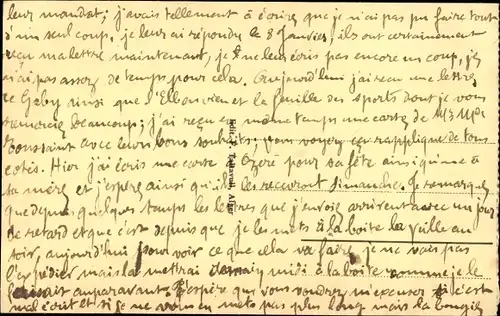 leur mandat; j'avais tellement à écrire que je n'ai pas pu faire tout
d'un seul coup, je leur ai répondu le 8 Janvier, ils ont certainement
reçu ma lettre maintenant, je ne leur écris pas encore un coup, je
n'ai pas assez de temps pour cela. Aujourd'hui j'ai reçu une lettre
de Gaby ainsi que l'Elbeuvien et la feuille des sports dont je vous
remercie beaucoup; j'ai reçu en même temps une carte de Mr & Mme
Constant avec leurs bons souhaits, vous voyez ça rapplique de tous
cotés. Hier j'ai écris une carte à pour sa fête ainsi qu'une à
ta mère et j'espère ainsi qu'ils les recevront dimanche. Je remarque
que depuis quelques temps les lettres que j'envoie arrivent avec un jour
de retard et que c'est depuis que je les mets à la boite la veille au
soir, aujourd'hui pour voir ce que cela va faire, je ne vais pas
l'expédier mais la mettrai demain midi à la boite comme je le
faisait auparavant. J'espère que vous voudrez m'excuser si c'est
mal écrit et si je ne vous en mets pas plus long mais la bougie
Alger